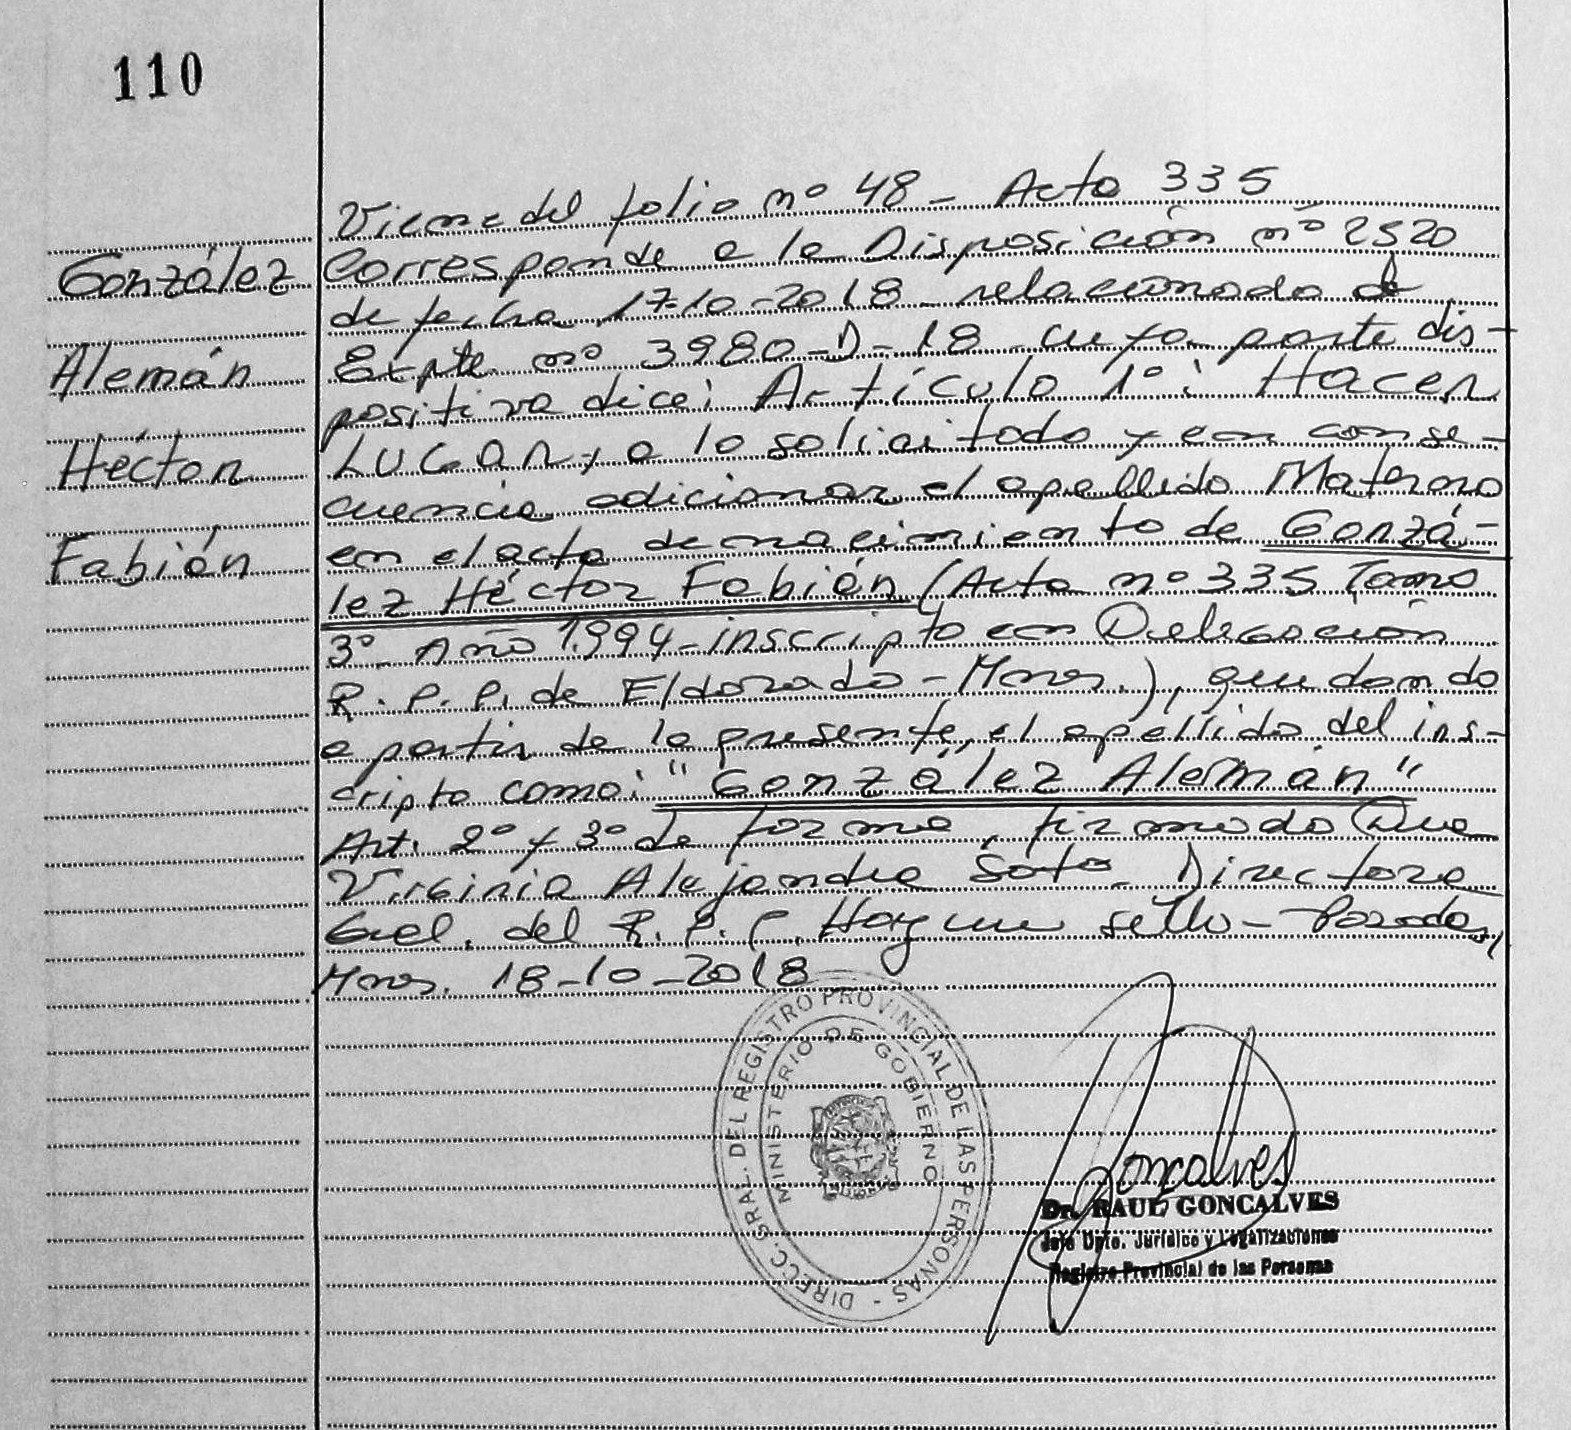 110
González
Alemán
Héctor
Fabián
Viene del folio nº 48 - Acta 335
Corresponde a la Disposición nº 2520
de fecha 17-10-2018 - relacionado al
Expte. nº 3980-D-18 - cuya parte dis-
positiva dice: Artículo 1º: Hacer
LUGAR, a lo solicitado y en conse-
cuencia adicionar el apellido Materno
en el acta de nacimiento de Gonzá-
lez Héctor Fabián (Acta nº 335 Tomo
3º Año 1994 - inscripto en Delegación
R.P.P. de Eldorado - Mnes.), quedando
a partir de la presente, el apellido del ins-
cripto como: "González Alemán"
Art. 2º y 3º de forma, firmado Dra
Virginia Alejandra Soto - Directora
Gral. del R.P.P. Hay un sello - Posadas,
Mnes. 18-10-2018
DIRECC. GRAL. DEL REGISTRO PROVINCIAL DE LAS PERSONAS -
MINISTERIO DE GOBIERNO
Gonçalves
Dr. RAUL GONCALVES
Jefe Dpto. Jurídico y Legalizaciones
Registro Provincial de las Personas